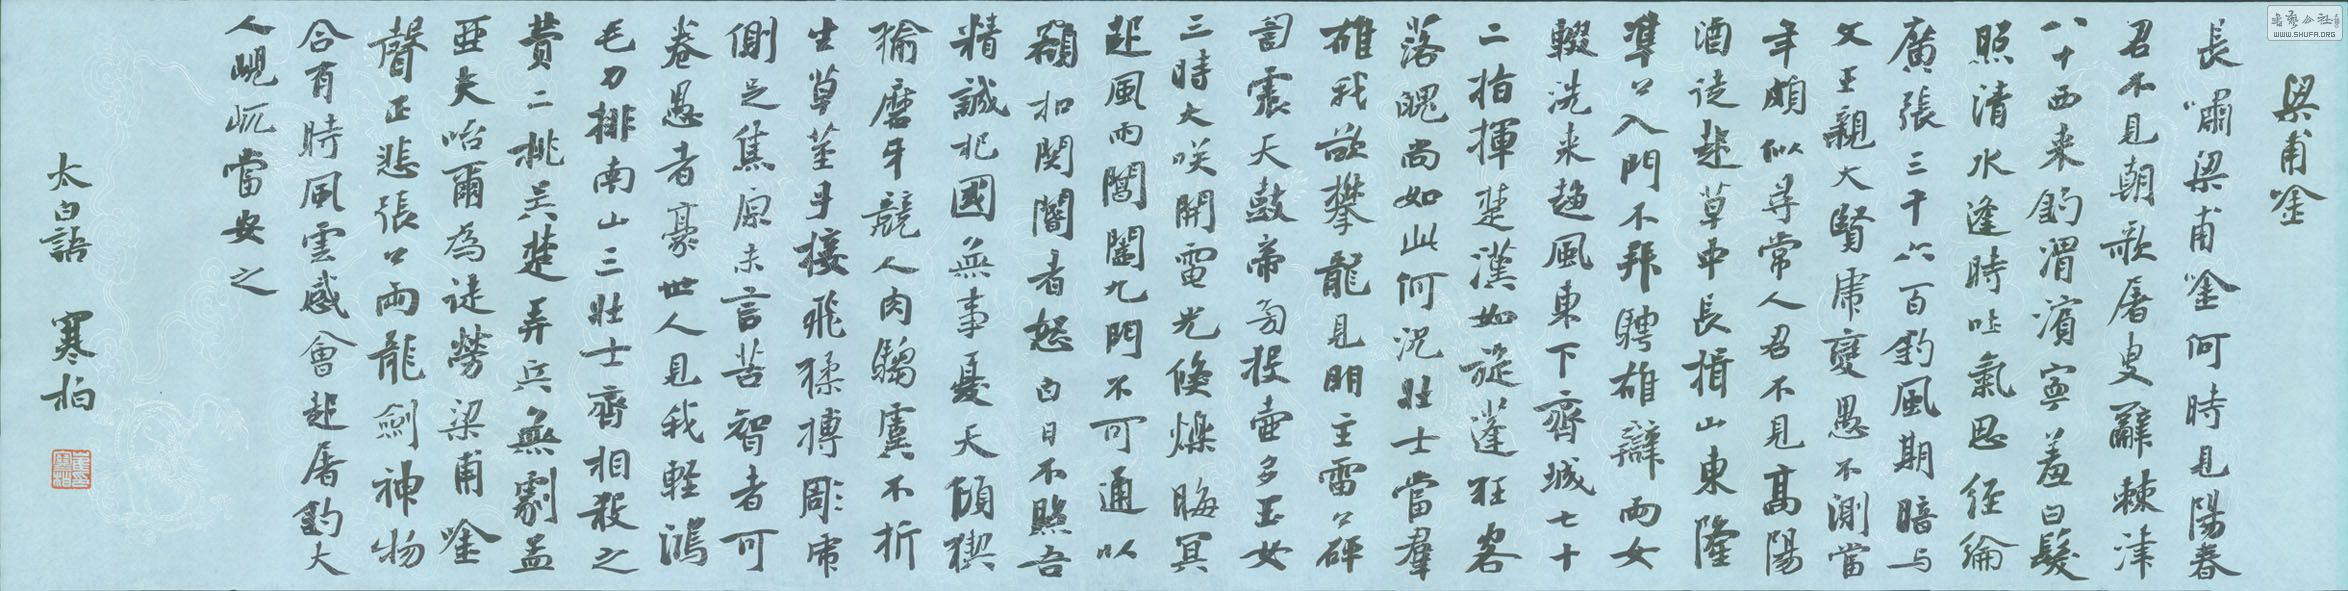 梁甫唫
長嘯梁甫唫何時見陽春
君不見朝歌屠叟辭棘津
八十西來釣渭濱寧羞白髮
照清水逢時吐氣思經綸
廣張三千六百釣風期暗与
文王親大賢虎變愚不測當
年頗似尋常人君不見高陽
酒徒起草中長揖山東隆
準公入門不拜騁雄辯兩女
輟洗來趨風東下齊城七十
二指揮楚漢如旋蓬狂客
落魄尚如此何況壯士當羣
雄我欲攀龍見明主雷公砰
訇震天鼓帝旁投壺多玉女
三時大咲開電光倏爍晦冥
起風雨閶闔九門不可通以
額扣関閽者怒白日不照吾
精誠杞國無事憂天傾猰
㺄磨牙競人肉騶虞不折
生草莖手接飛猱搏彫虎
側足焦原未言苦智者可
卷愚者豪世人見我輕鴻
毛力排南山三壯士齊相殺之
費二桃吳楚弄兵無劇孟
亞夫咍爾為徒勞梁甫唫
聲正悲張公兩龍劍神物
合有時風雲感會起屠釣大
人峴屼當安之
太白語 寒柏
書藝公社
WWW.SHUFA.ORG